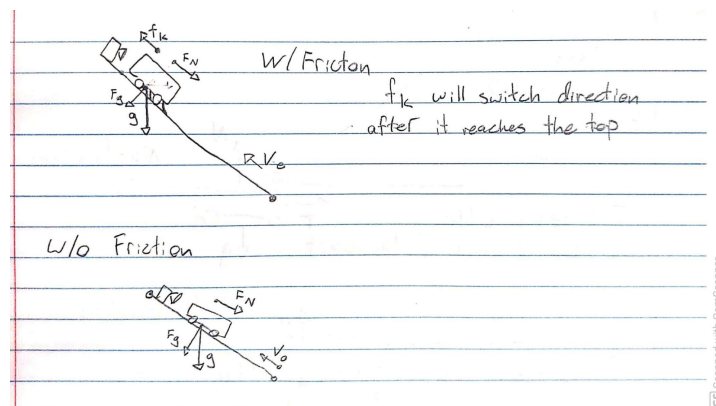 fk
FN
W/ Fricton
Fg
g
fk will switch direction
after it reaches the top
Vo
W/o Friction
FN
Fg
g
Vo